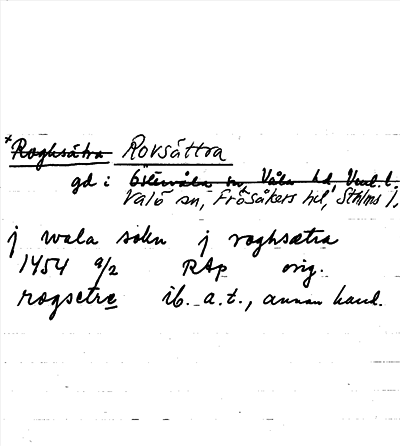 *Roghsätra Rovsättra
gd i Östervåla sn, Våla hd, Vml. l.
Valö sn, Frösåkers hd, Sthlms l.
j wala sokn j roghsætra
1454 9/2 RAp orig.
rogsetre ib. a.t., annan hand.